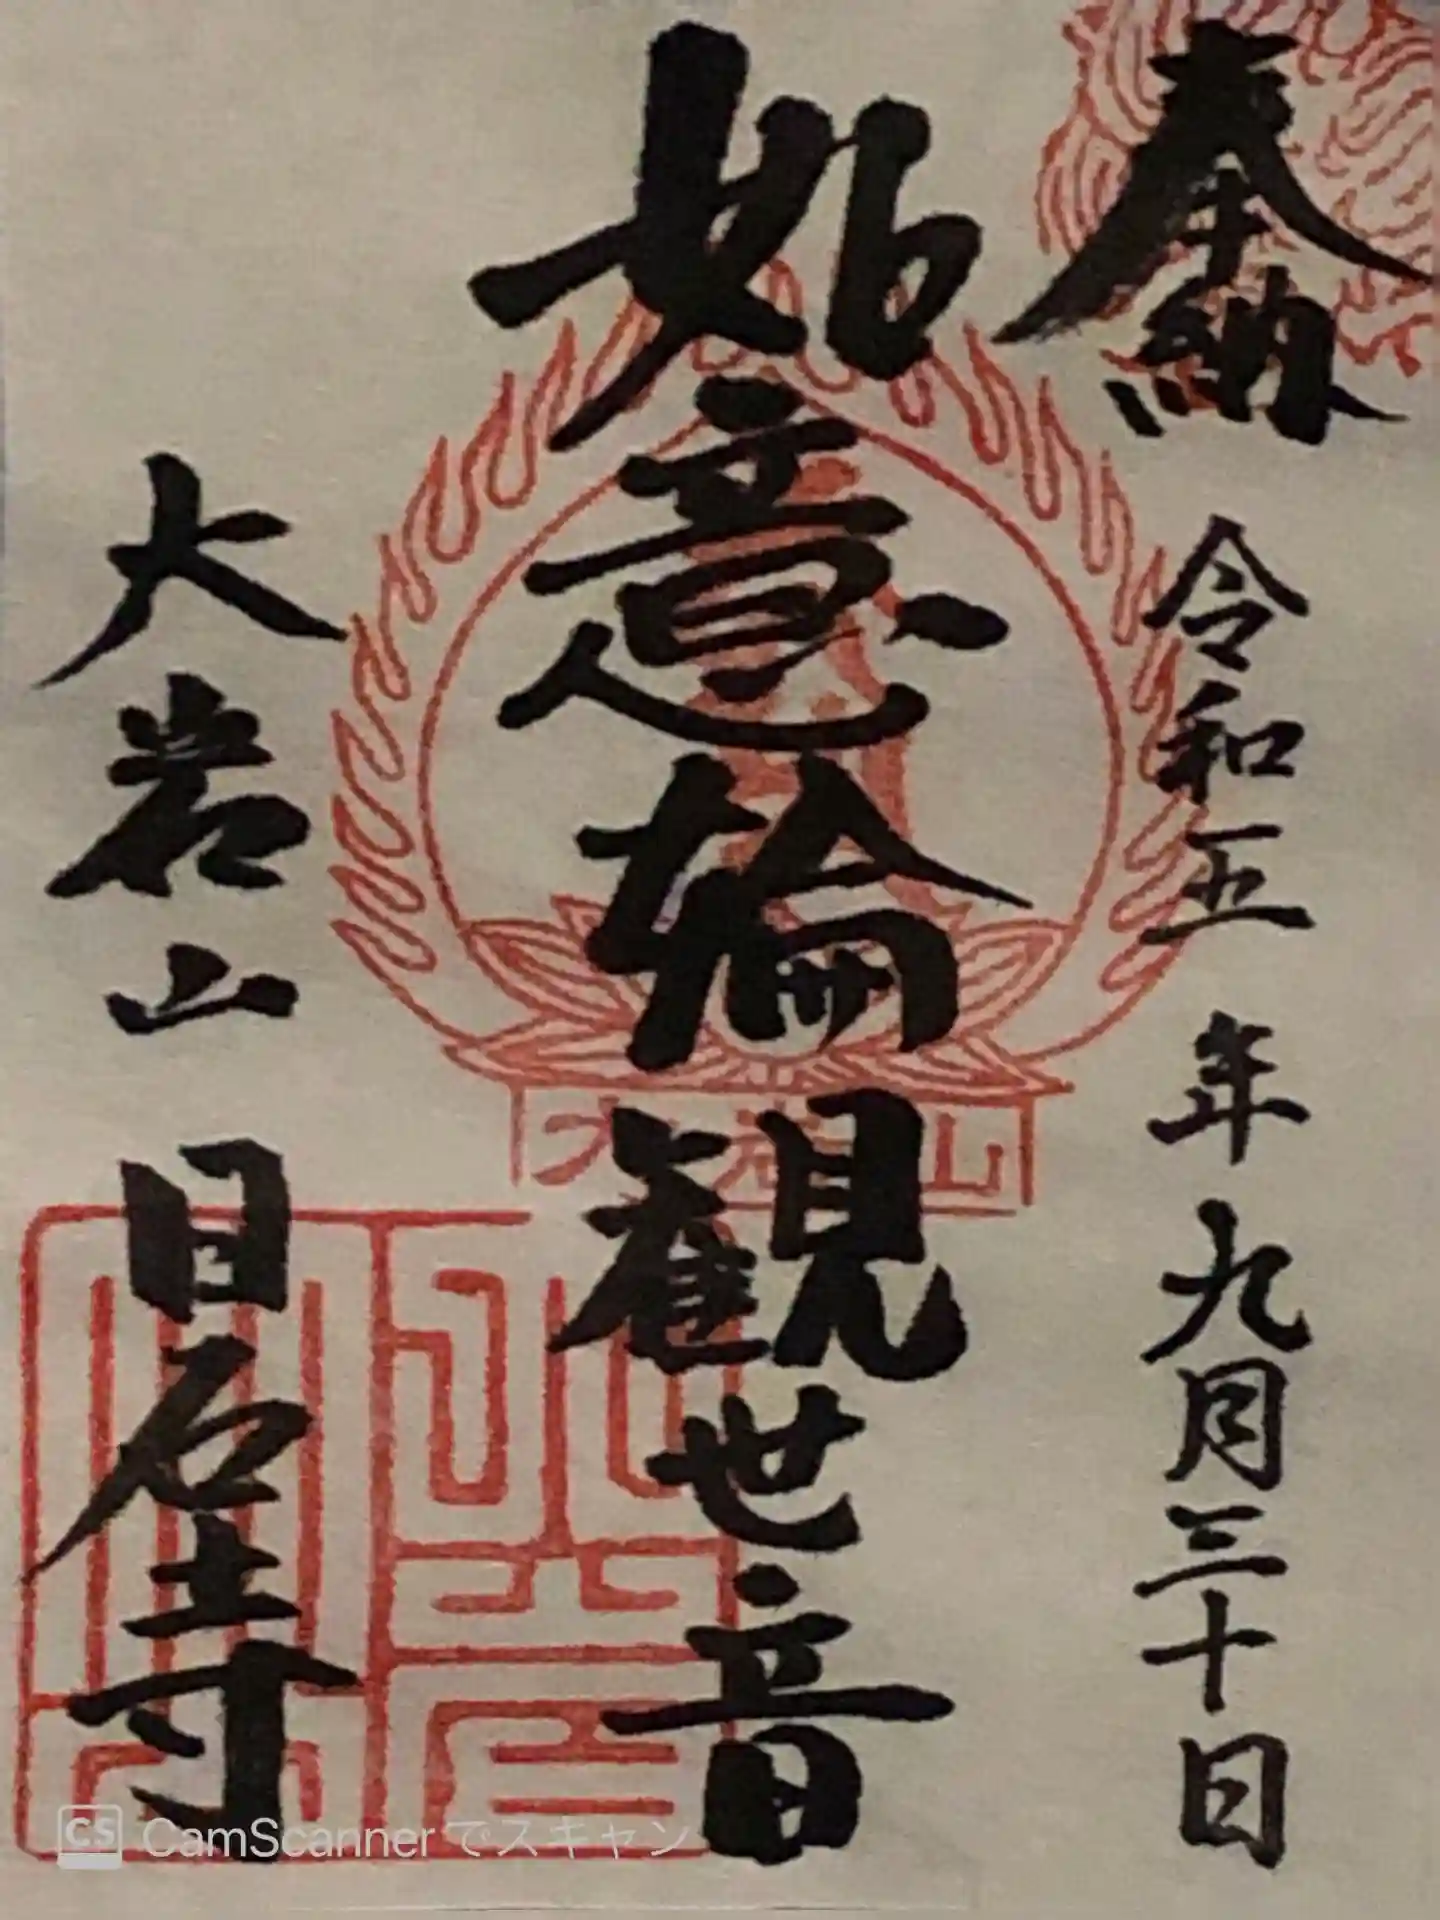 奉納 令和五年九月三十日
如意輪観世音
大岩山 日石寺
大岩山
CamScannerでスキャン